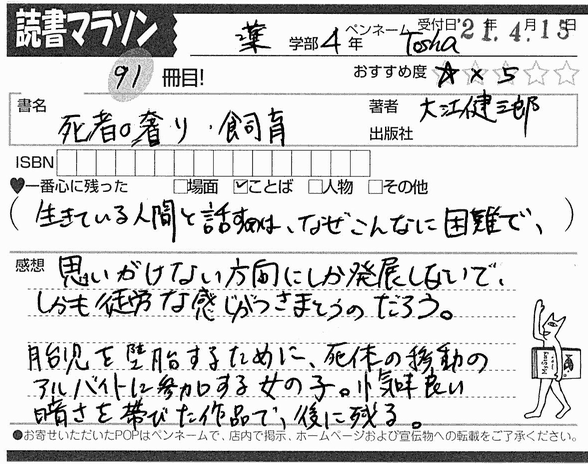 読書マラソン
薬 学部 4 年 ペンネーム Tosha 受付日 '21年 4.月15日
91 冊目! おすすめ度 ☆×5 ☆☆
書名 死者の奢り・飼育 著者 大江健三郎
出版社
ISBN
♥一番心に残った □場面 ☑ことば □人物 □その他
(生きている人間と話すのは、なぜこんなに困難で、)
感想 思いがけない方向にしか発展しないで、
しかも徒労な感じがつきまとうのだろう。
胎児を堕胎するために、死体の移動の
アルバイトに参加する女の子。小気味良い
暗さを帯びた作品で、後に残る。
●お寄せいただいたPOPはペンネームで、店内で掲示、ホームページおよび宣伝物への転載をご了承ください。